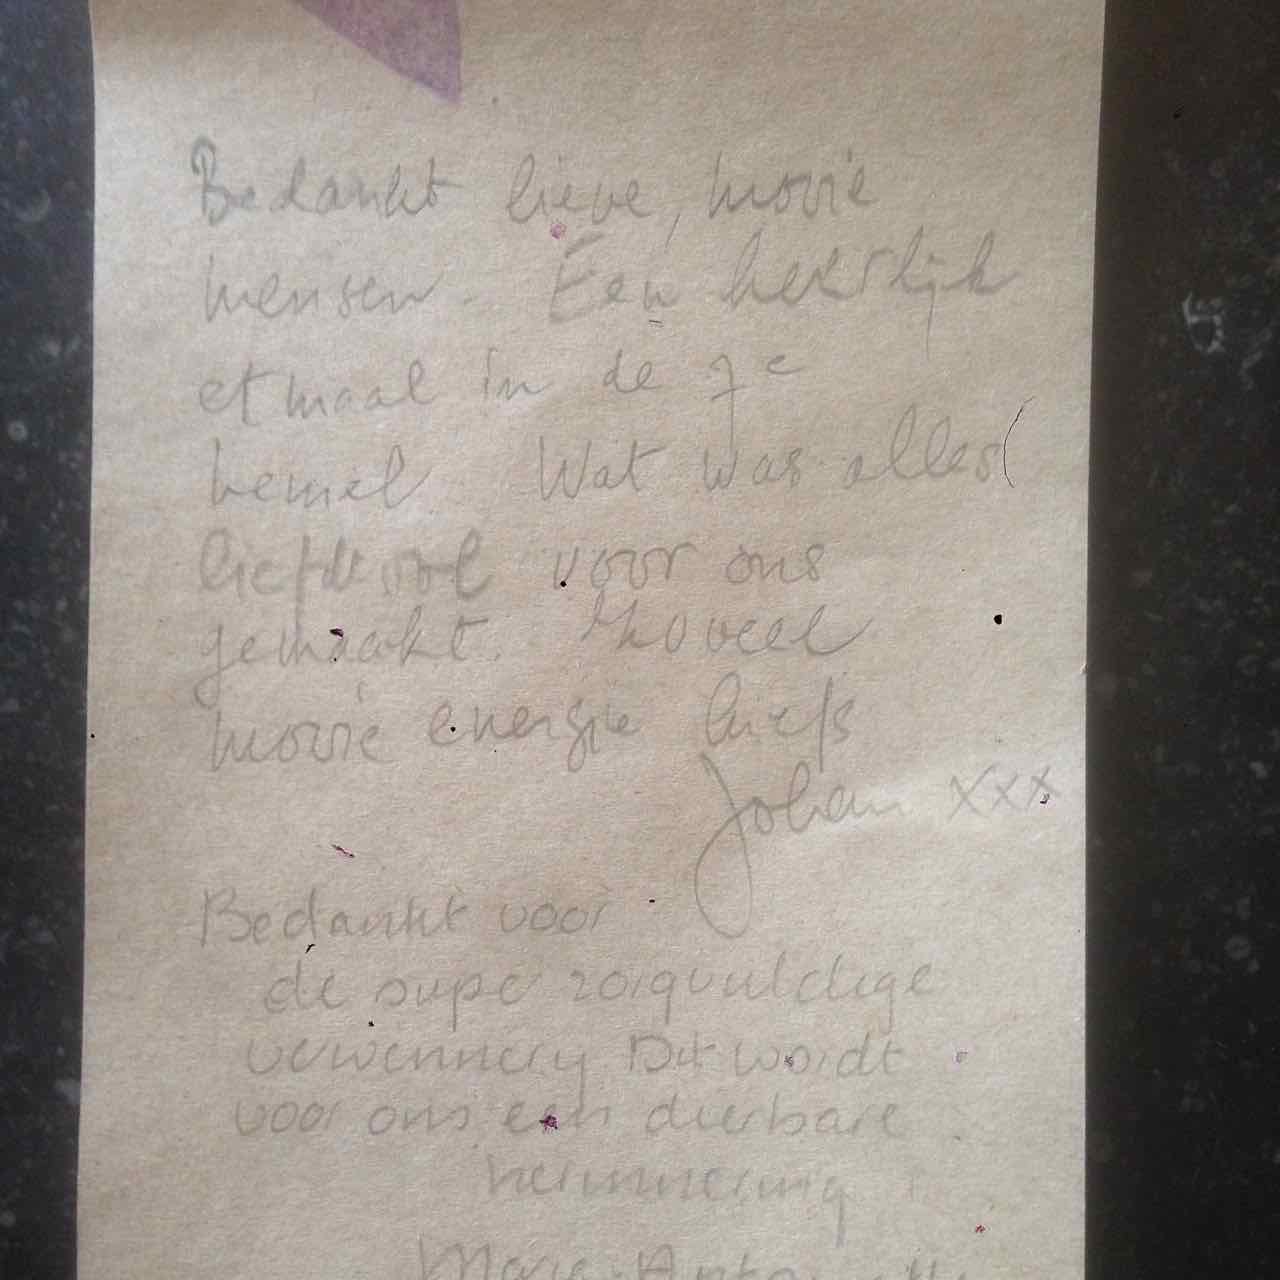 Bedankt lieve, mooie
mensen. Een heerlijk
etmaal in de 7e
hemel. Wat was alles
liefdevol voor ons
gemaakt. Zoveel
mooie energie liefs
Johan xxx
Bedankt voor
de super zorgvuldige
verwennerij Dit wordt
voor ons een dierbare
herinnering
Marie-Antoinette